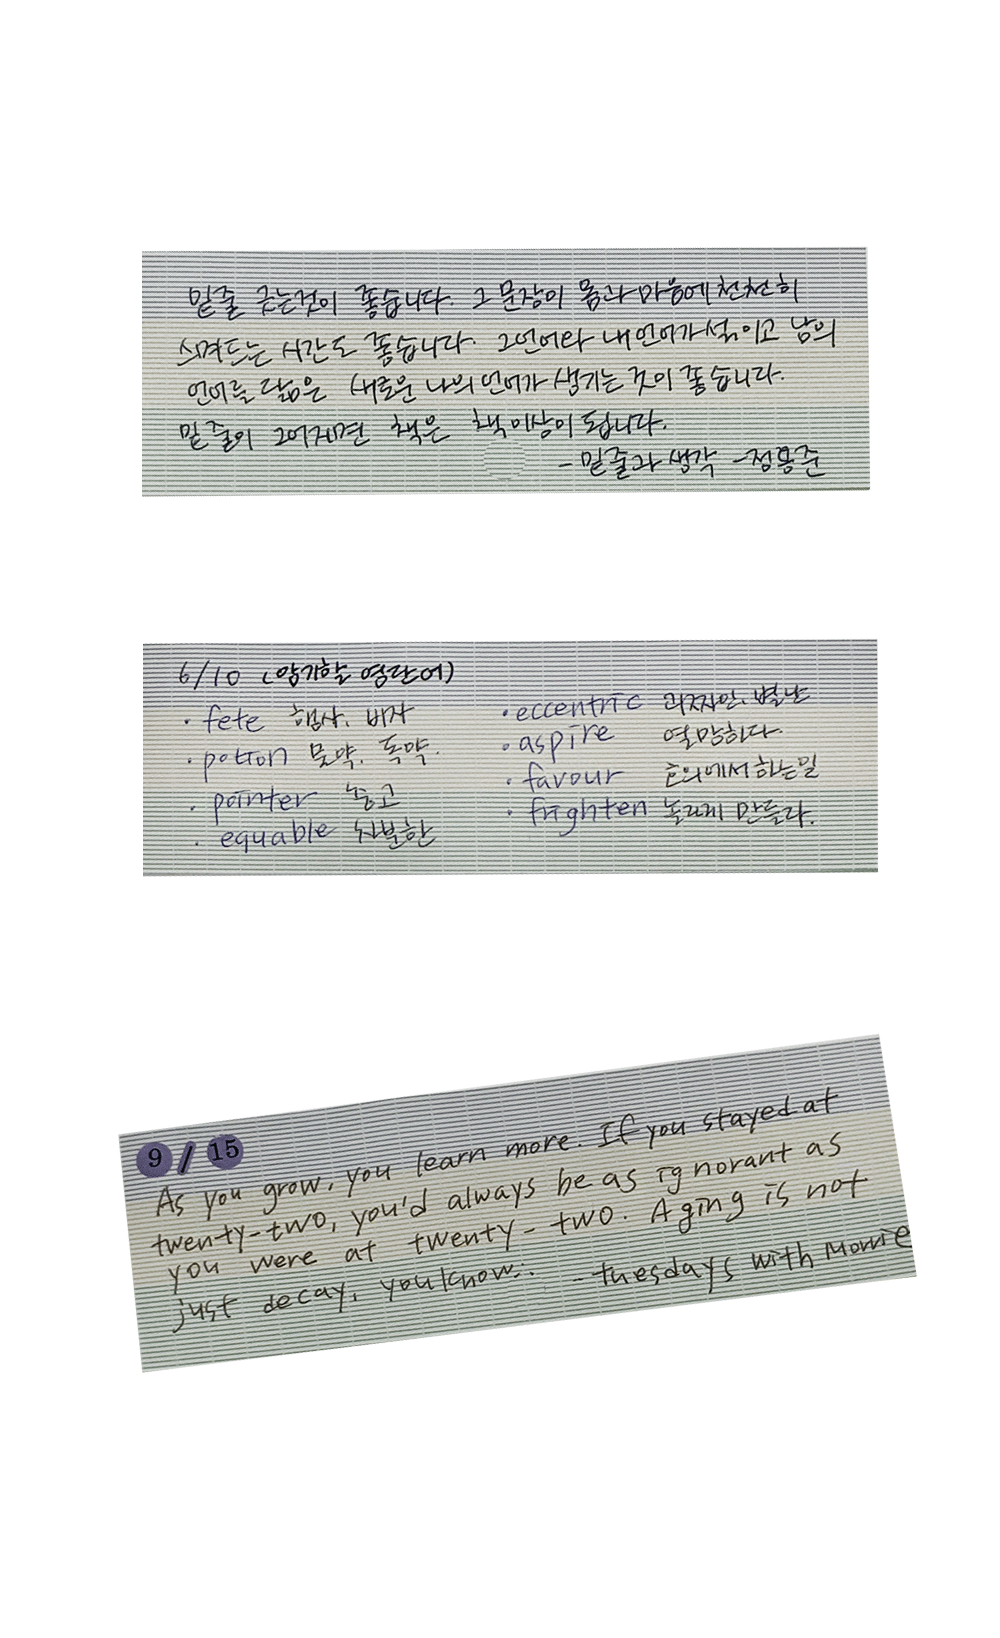 밑줄 긋는것이 좋습니다. 그 문장이 몸과 마음에 천천히
스며드는 시간도 좋습니다. 그언어와 내 언어가 섞이고 남의
언어를 닮은 새로운 나의 언어가 생기는 것이 좋습니다.
밑줄이 그어지면 책은 책 이상이 됩니다.
- 밑줄과 생각 - 정용준
6/10 (암기할 영단어)
· fete 행사. 바자
· potion 묘약. 독약.
· pointer 충고
· equable 차분한
· eccentric 괴짜인. 별난
· aspire 열망하다.
· favour 호의에서 하는일
· frighten 놀라게 만들다.
9 / 15
As you grow, you learn more. If you stayed at
twenty-two, you'd always be as ignorant as
you were at twenty-two. Aging is not
just decay, you know.. - tuesdays with Morrie